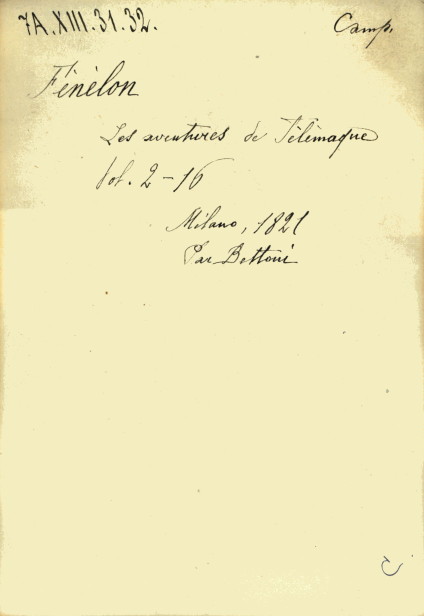 7A.XIII.31.32.
Camp.
Fénélon
Les aventures de Télémaque
Vol. 2-16
Milano, 1821
Par Bettoni